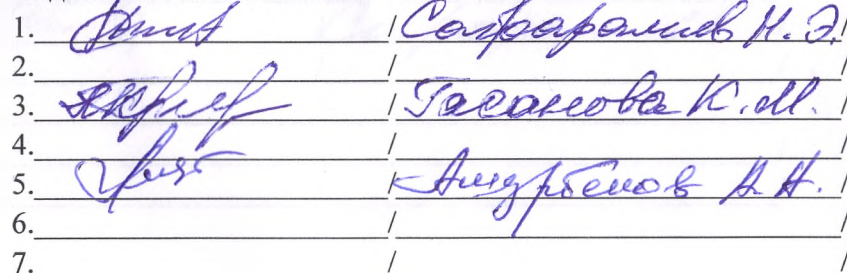 1. / Сафаралиев Н. Э. /
2. / /
3. / Гасанова К. М. /
4. / /
5. / Ашурбеков А. Н. /
6. / /
7. / /